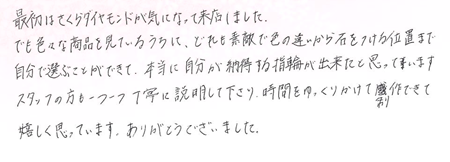 最初はさくらダイヤモンドが気になって来店しました。
でも色々な商品を見ているうちに、どれも素敵で色の違いから石をつける位置まで
自分で選ぶことができて、本当に自分が納得する指輪が出来たと思っています
スタッフの方も一つ一つ丁寧に説明して下さり、時間をゆっくりかけて製作できて
嬉しく思っています。ありがとうございました。